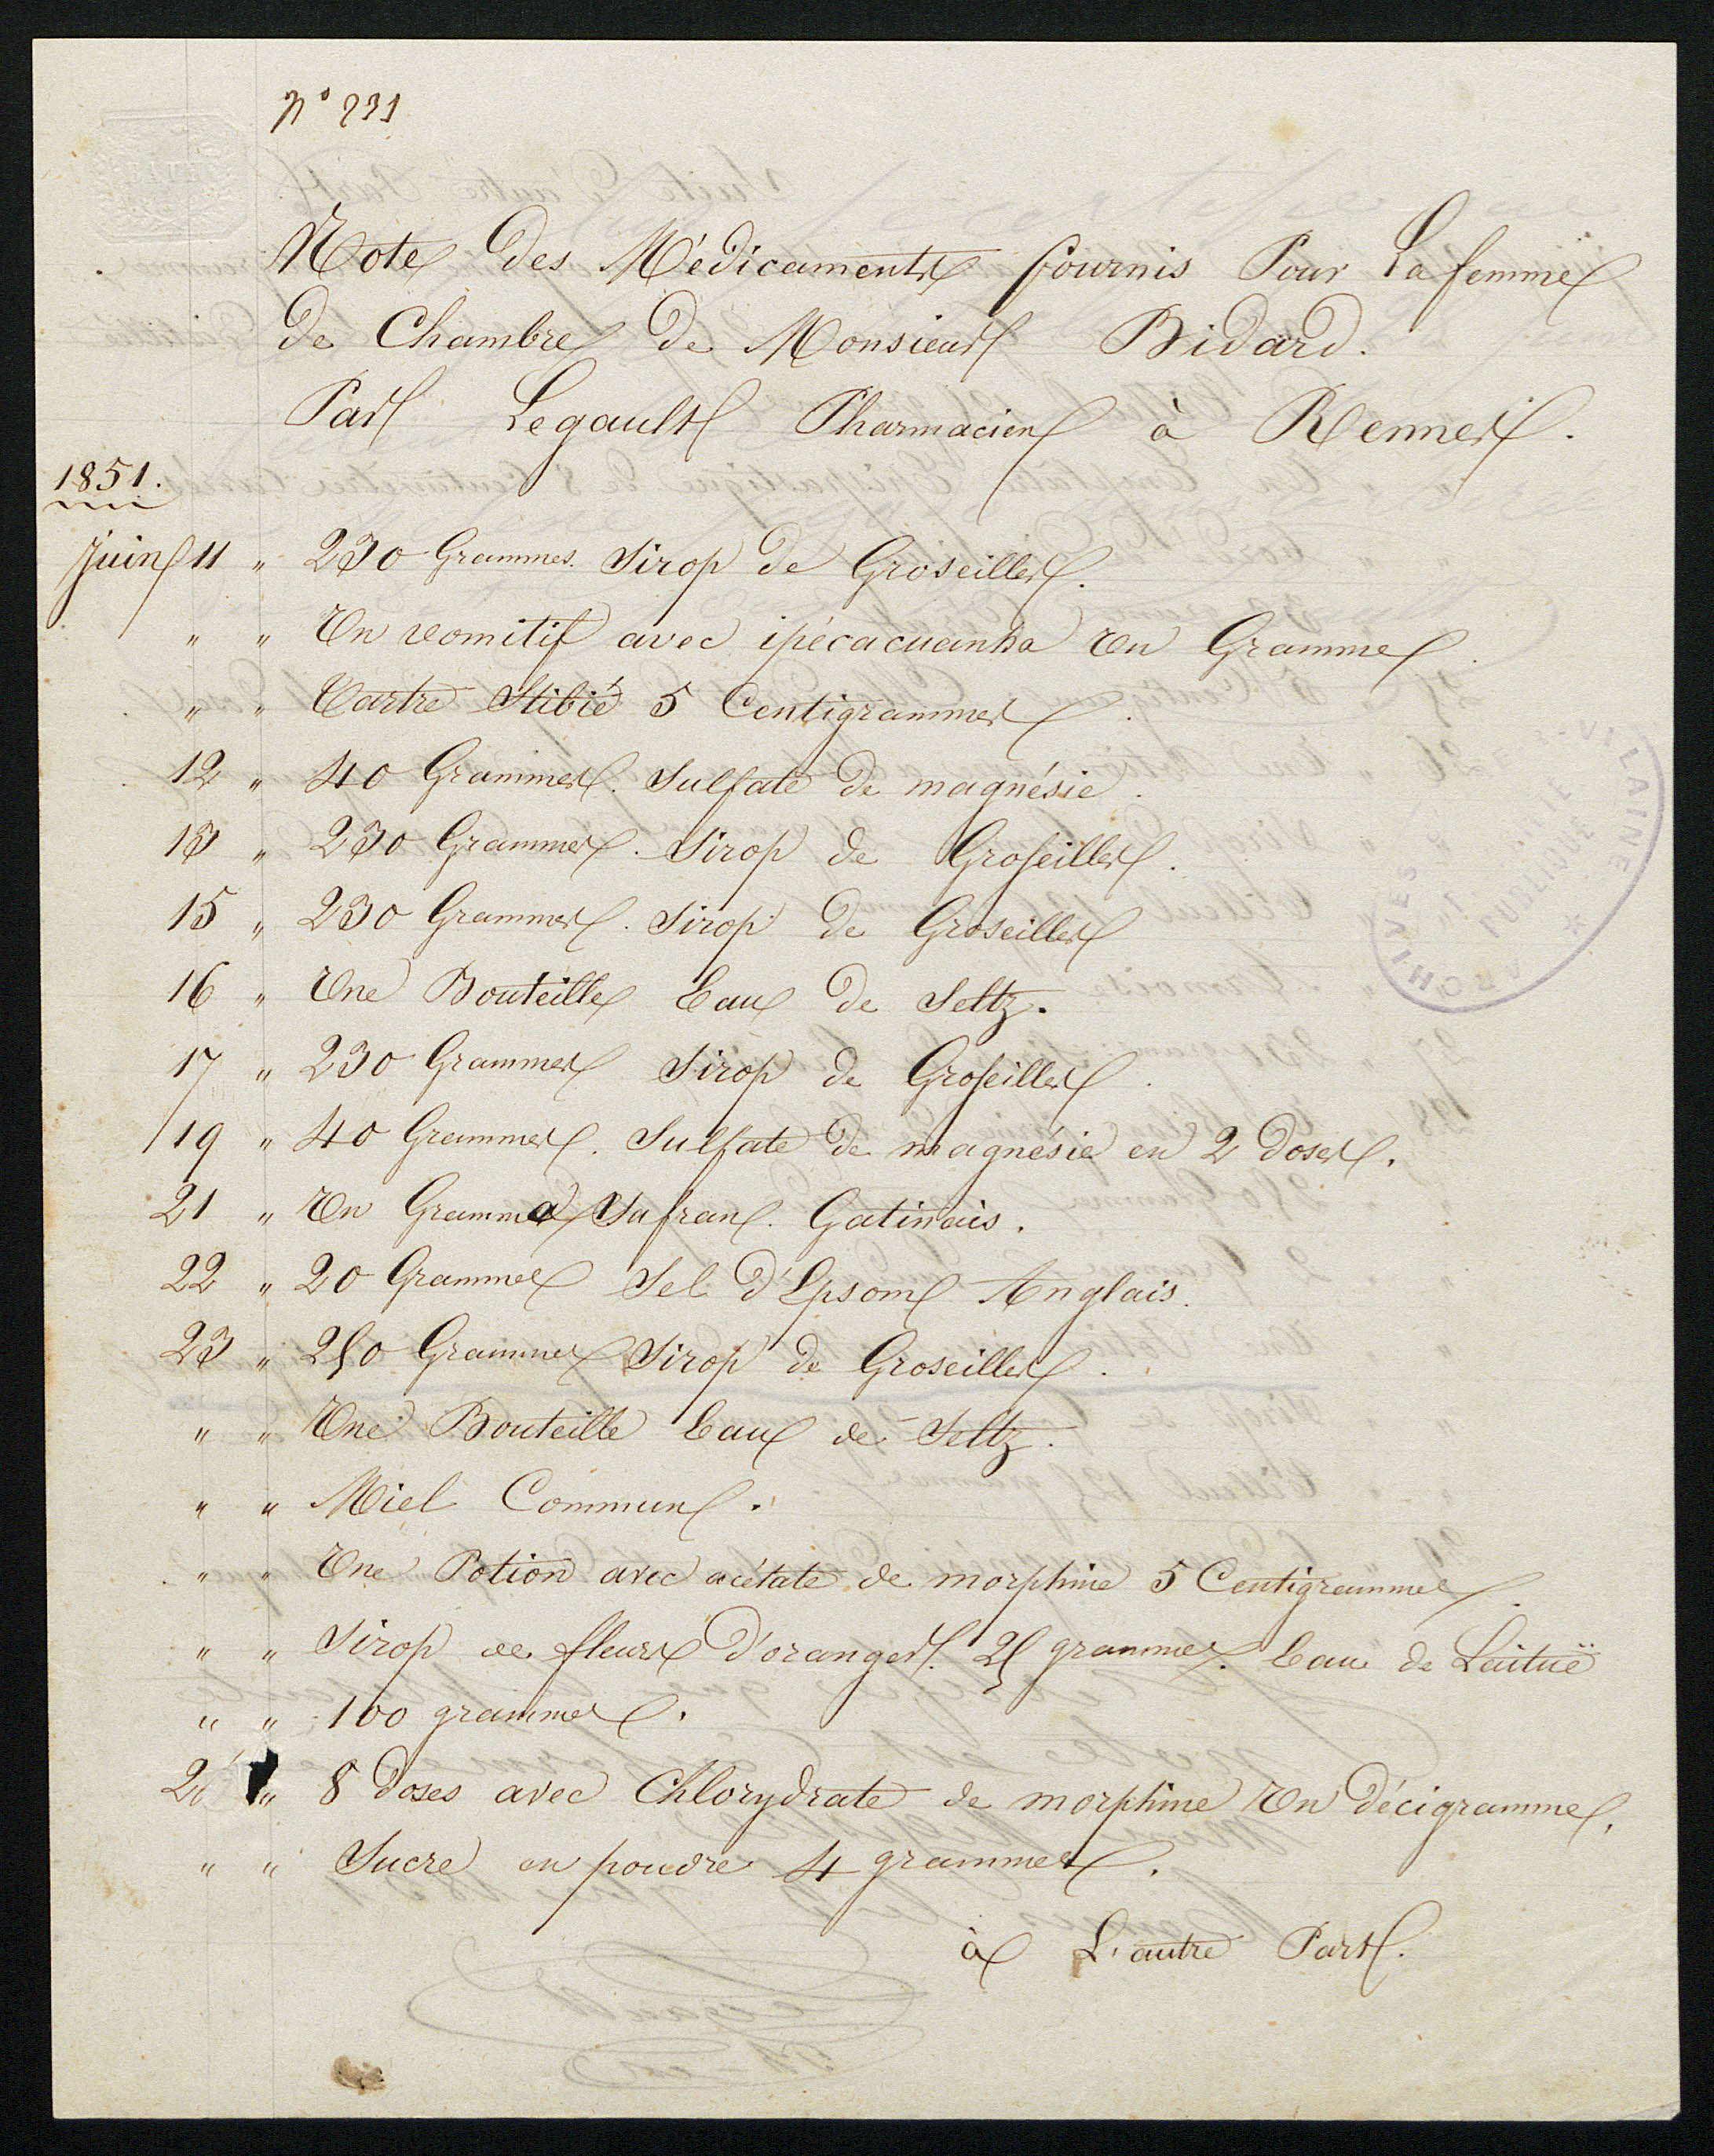 N° 231
Note des Médicaments fournis Pour La femme
de Chambre de Monsieur Bidard.
Par Legault Pharmacien à Rennes.
1851.
Juin 11 " 230 Grammes. Sirop de Groseilles.
" " Un vomitif avec ipécacuanha Un Gramme.
" " Tartre Stibié 5 Centigrammes.
12 " 40 Grammes. Sulfate de magnésie.
13 " 230 Grammes. Sirop de Groseilles.
15 " 230 Grammes. Sirop de Groseilles
16 " Une Bouteille Eau de Seltz.
17 " 230 Grammes Sirop de Groseilles.
19 " 40 Grammes. Sulfate de magnésie en 2 doses.
21 " Un Gramme Safran. Gatinais.
22 " 20 Grammes Sel d'Epsom Anglais.
23 " 250 Grammes Sirop de Groseilles.
" " Une Bouteille Eau de Seltz.
" " Miel Commun.
" " Une Potion avec acétate de morphine 5 Centigrammes.
" " Sirop de fleurs d'oranger. 25 grammes. Eau de Laituë
" " 100 grammes.
" 8 doses avec Chlorydrate de morphine Un décigramme.
" " Sucre en poudre 4 grammes.
à L'autre Part.
ARCHIVES VILAINE
PUBLIQUE